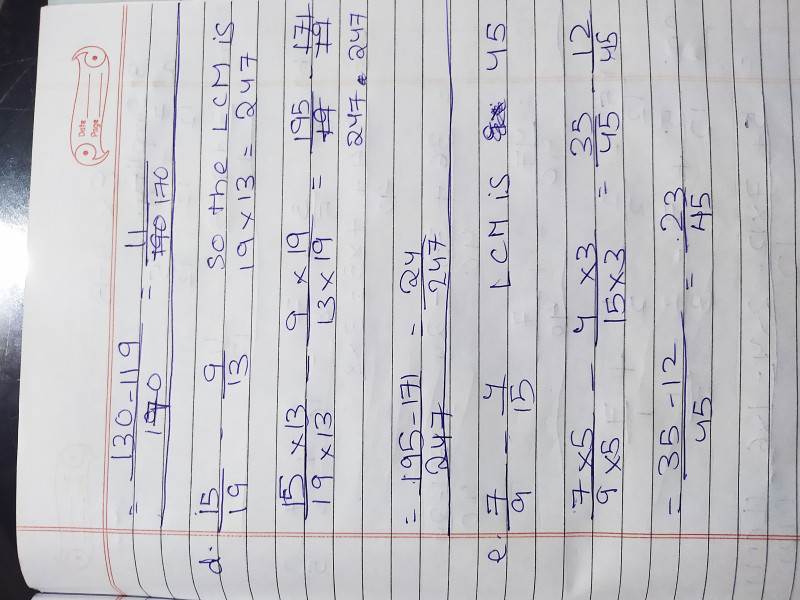 Date
Page
= 130-119/170 = 11/170
d. 15/19 - 9/13 SO the LCM is
19 x 13 = 247
15 x 13/19 x 13 - 9 x 19/13 x 19 = 195/247 - 171/247
= 195-171/247 = 24/247
e. 7/9 - 4/15 LCM is 45
7 x 5/9 x 5 - 4 x 3/15 x 3 = 35/45 - 12/45
= 35-12/45 = 23/45